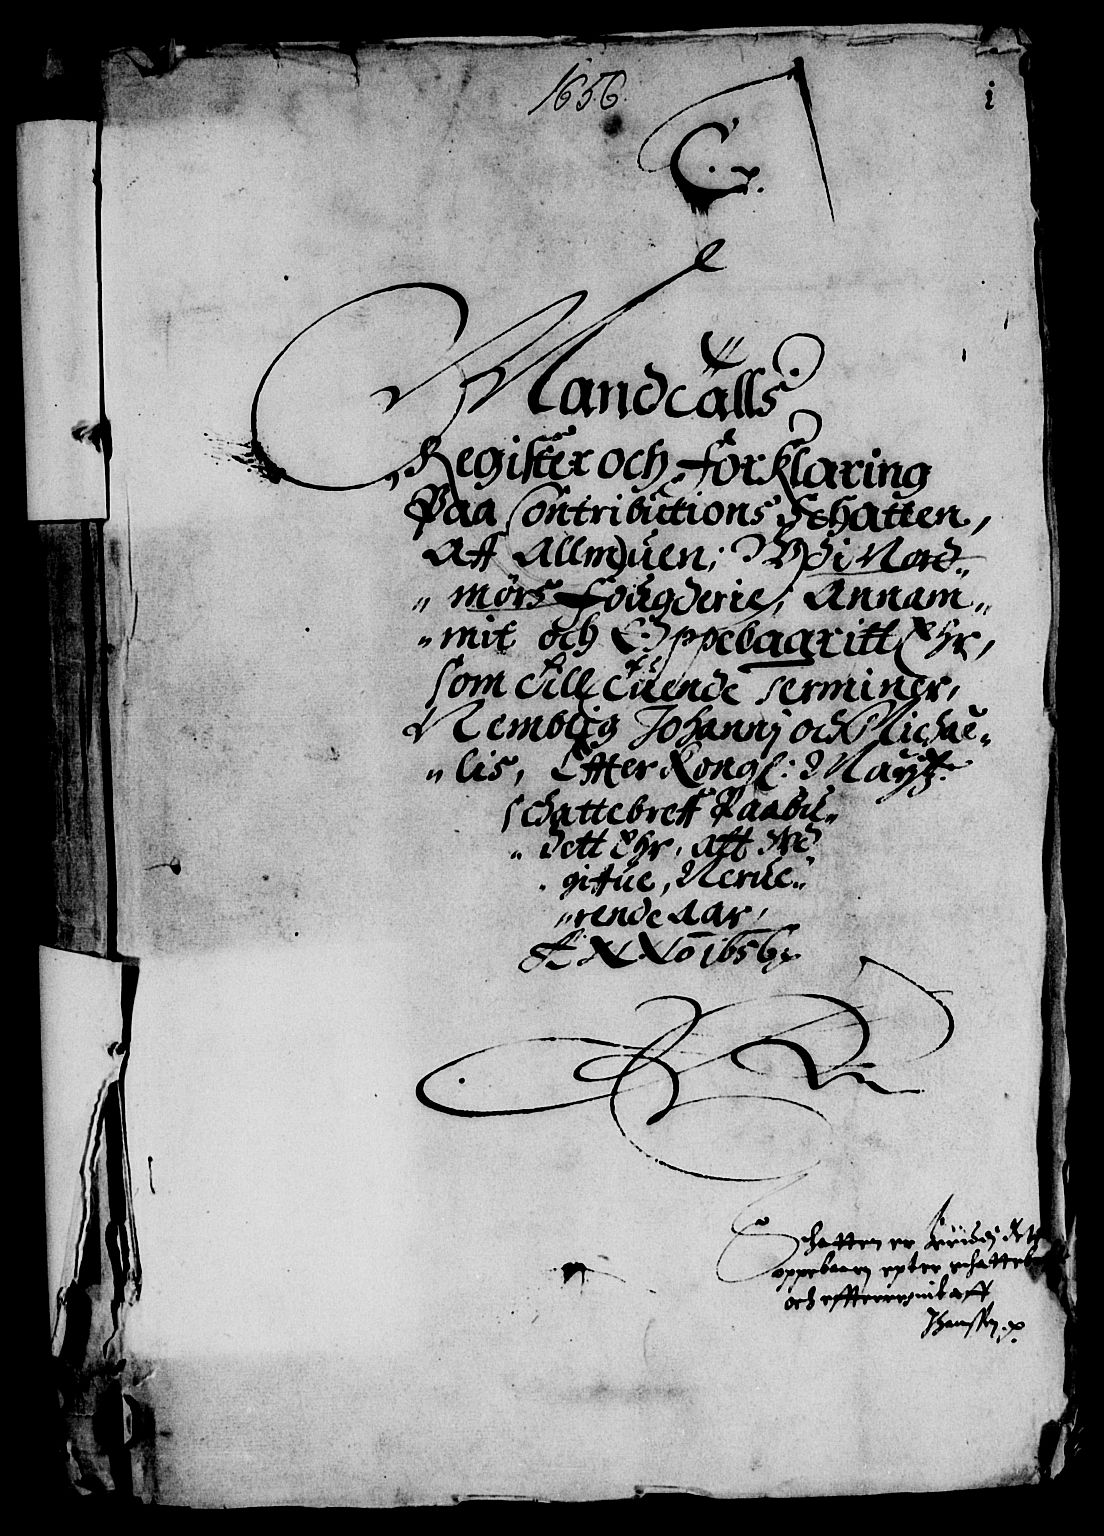 1656
i
C.
Mandtalls
Register och Forklaring
Paa Contributions Schatten,
Aff Allmuen; Udi Nord„
„mörs Fougderie, Annam„
„mit och Oppebagritt Ehr,
som till tuende Terminer,
Nemblig Johannj och Michae„
„lis, Effter Kongl: Maytz
schattebreff Paabu„
„dett Ehr, aff
gifue, Nerue„
„rende Aar,
ANNO 1656
Schatten er
oppebaaren epter
och effter aff